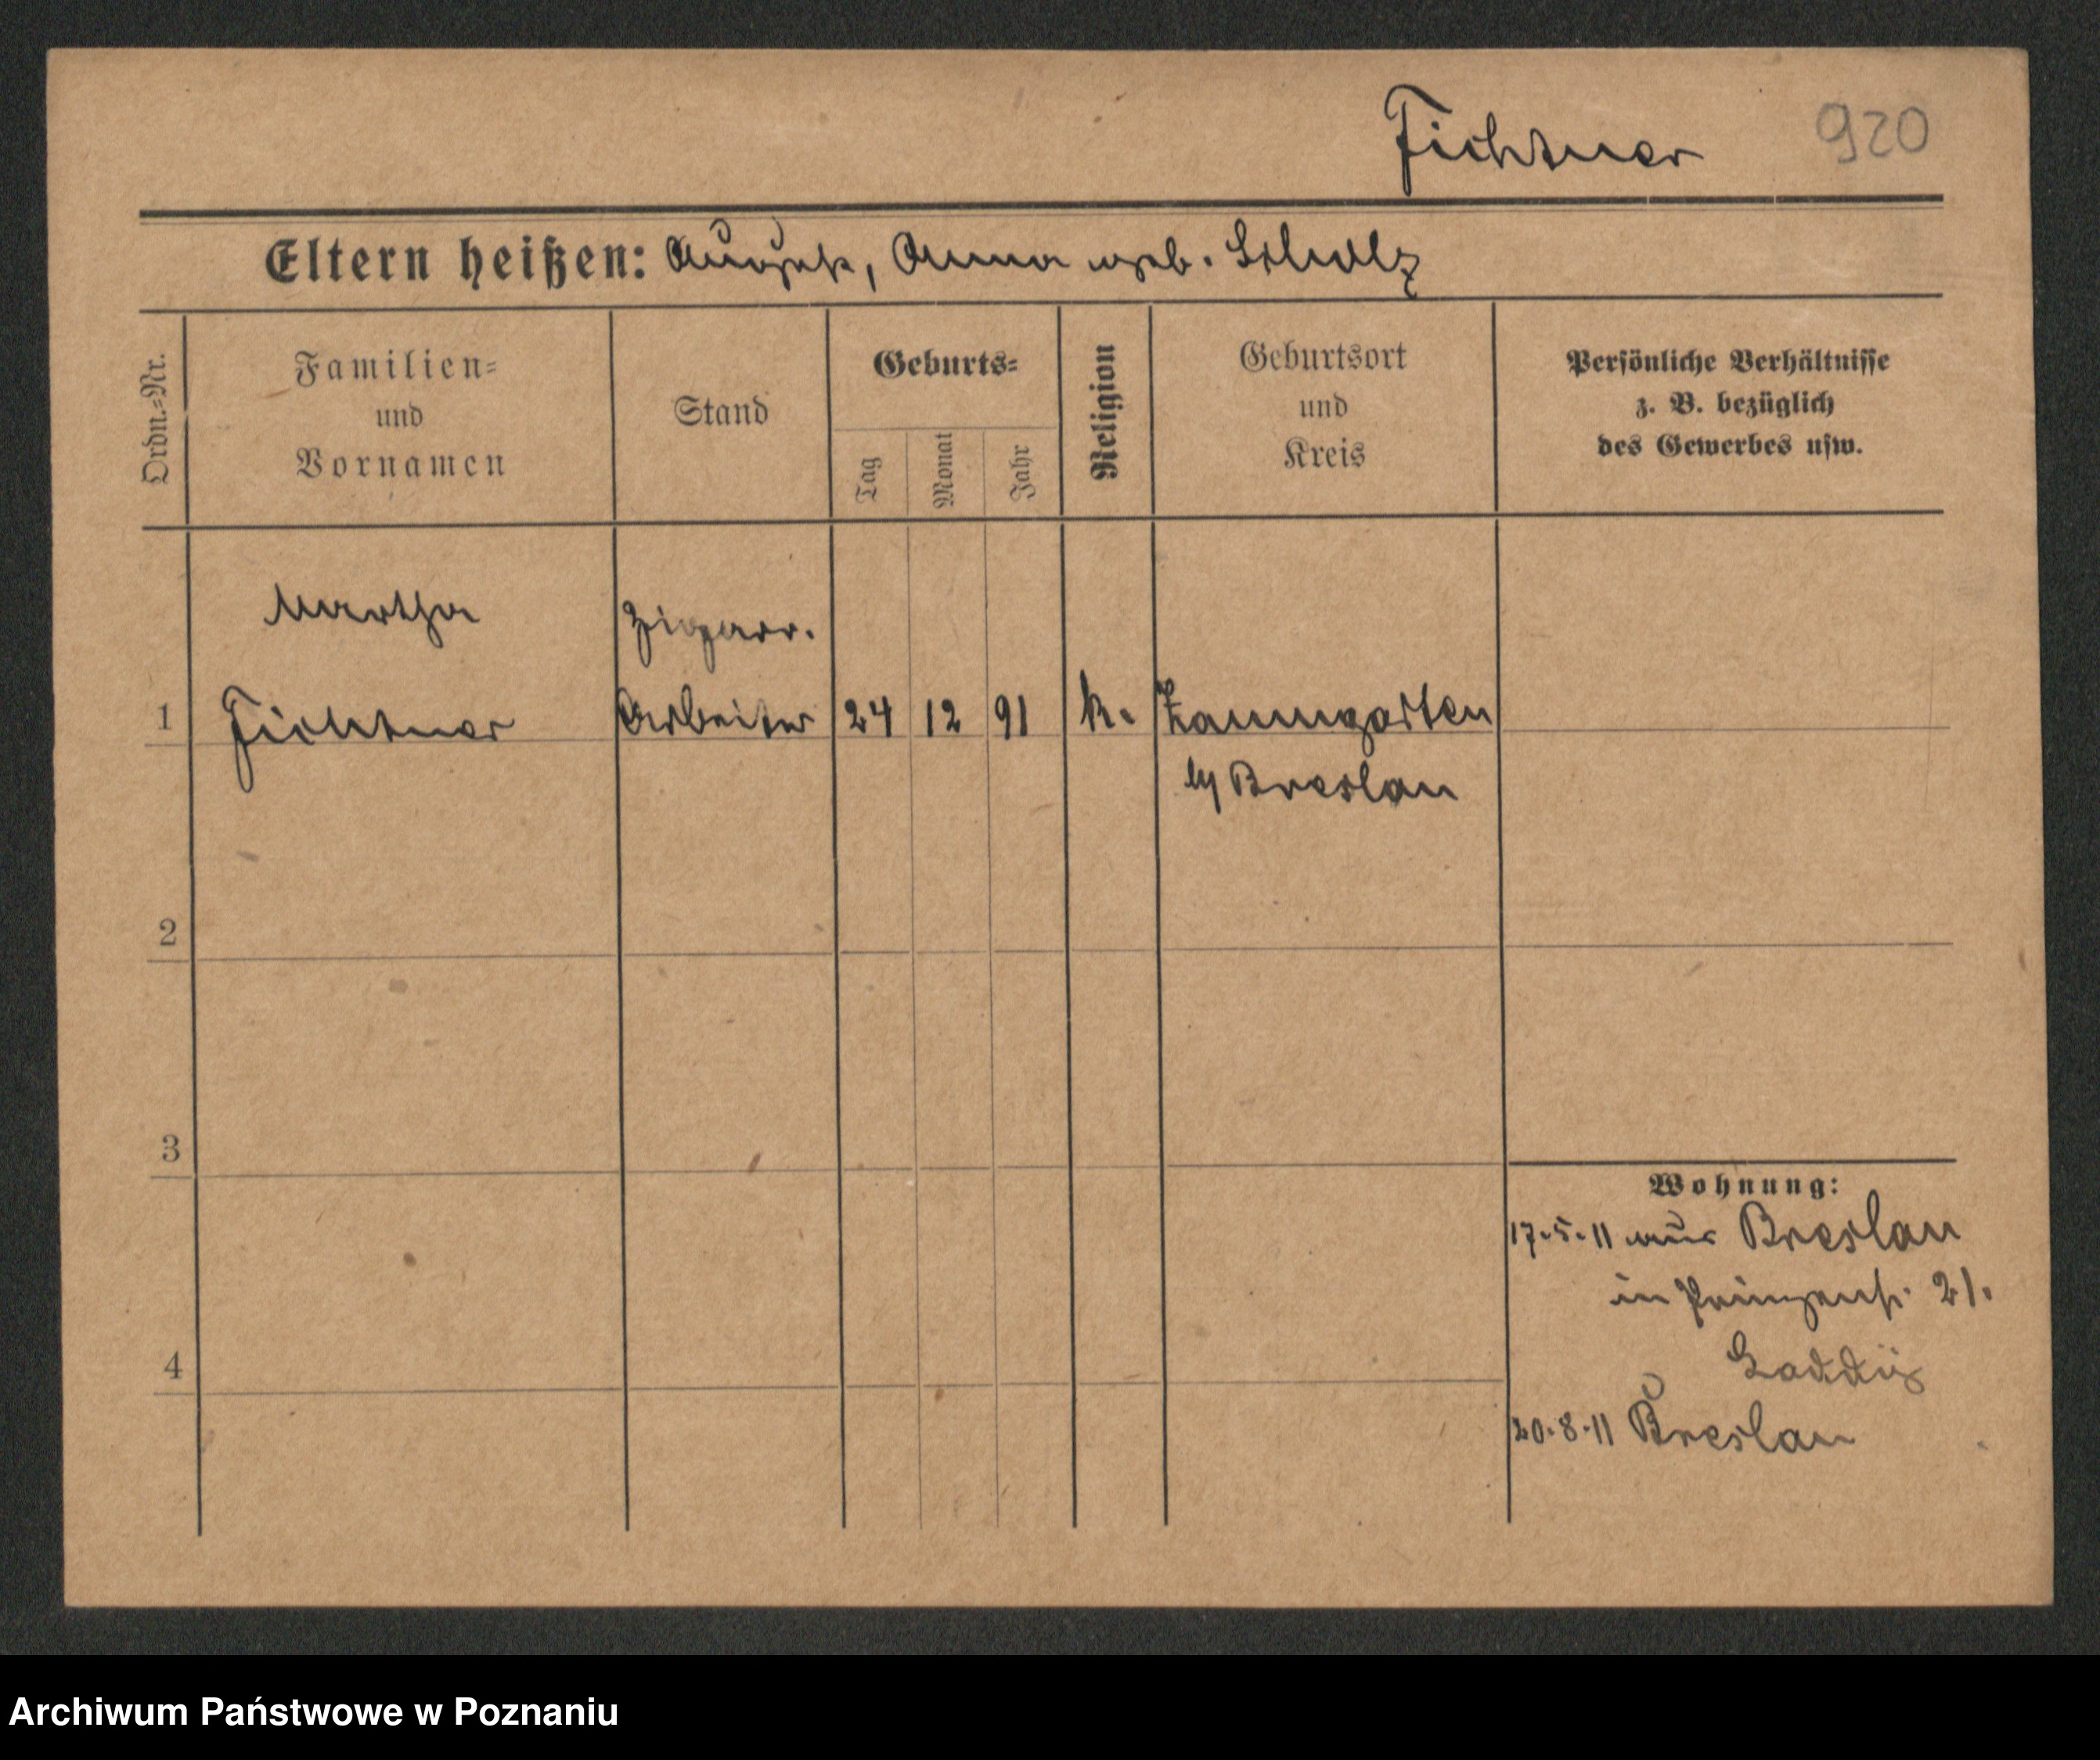 Fichtner 920
Eltern heißen: August, Anna geb. Scholz
Ordn.=Nr.
Familien=
und
Vornamen
Stand
Geburts=
Tag
Monat
Jahr
Religion
Geburtsort
und
Kreis
Persönliche Verhältnisse
z. B. bezüglich
des Gewerbes usw.
Martha
Zigarr.
1 Fichtner Arbeiter 24 12 91 k. Zaumgarten
b/ Breslau
2
3
4
Wohnung:
17.5.11 aus Breslau
in Prinzenstr. 21.
20.8.11 Breslau
Archiwum Państwowe w Poznaniu